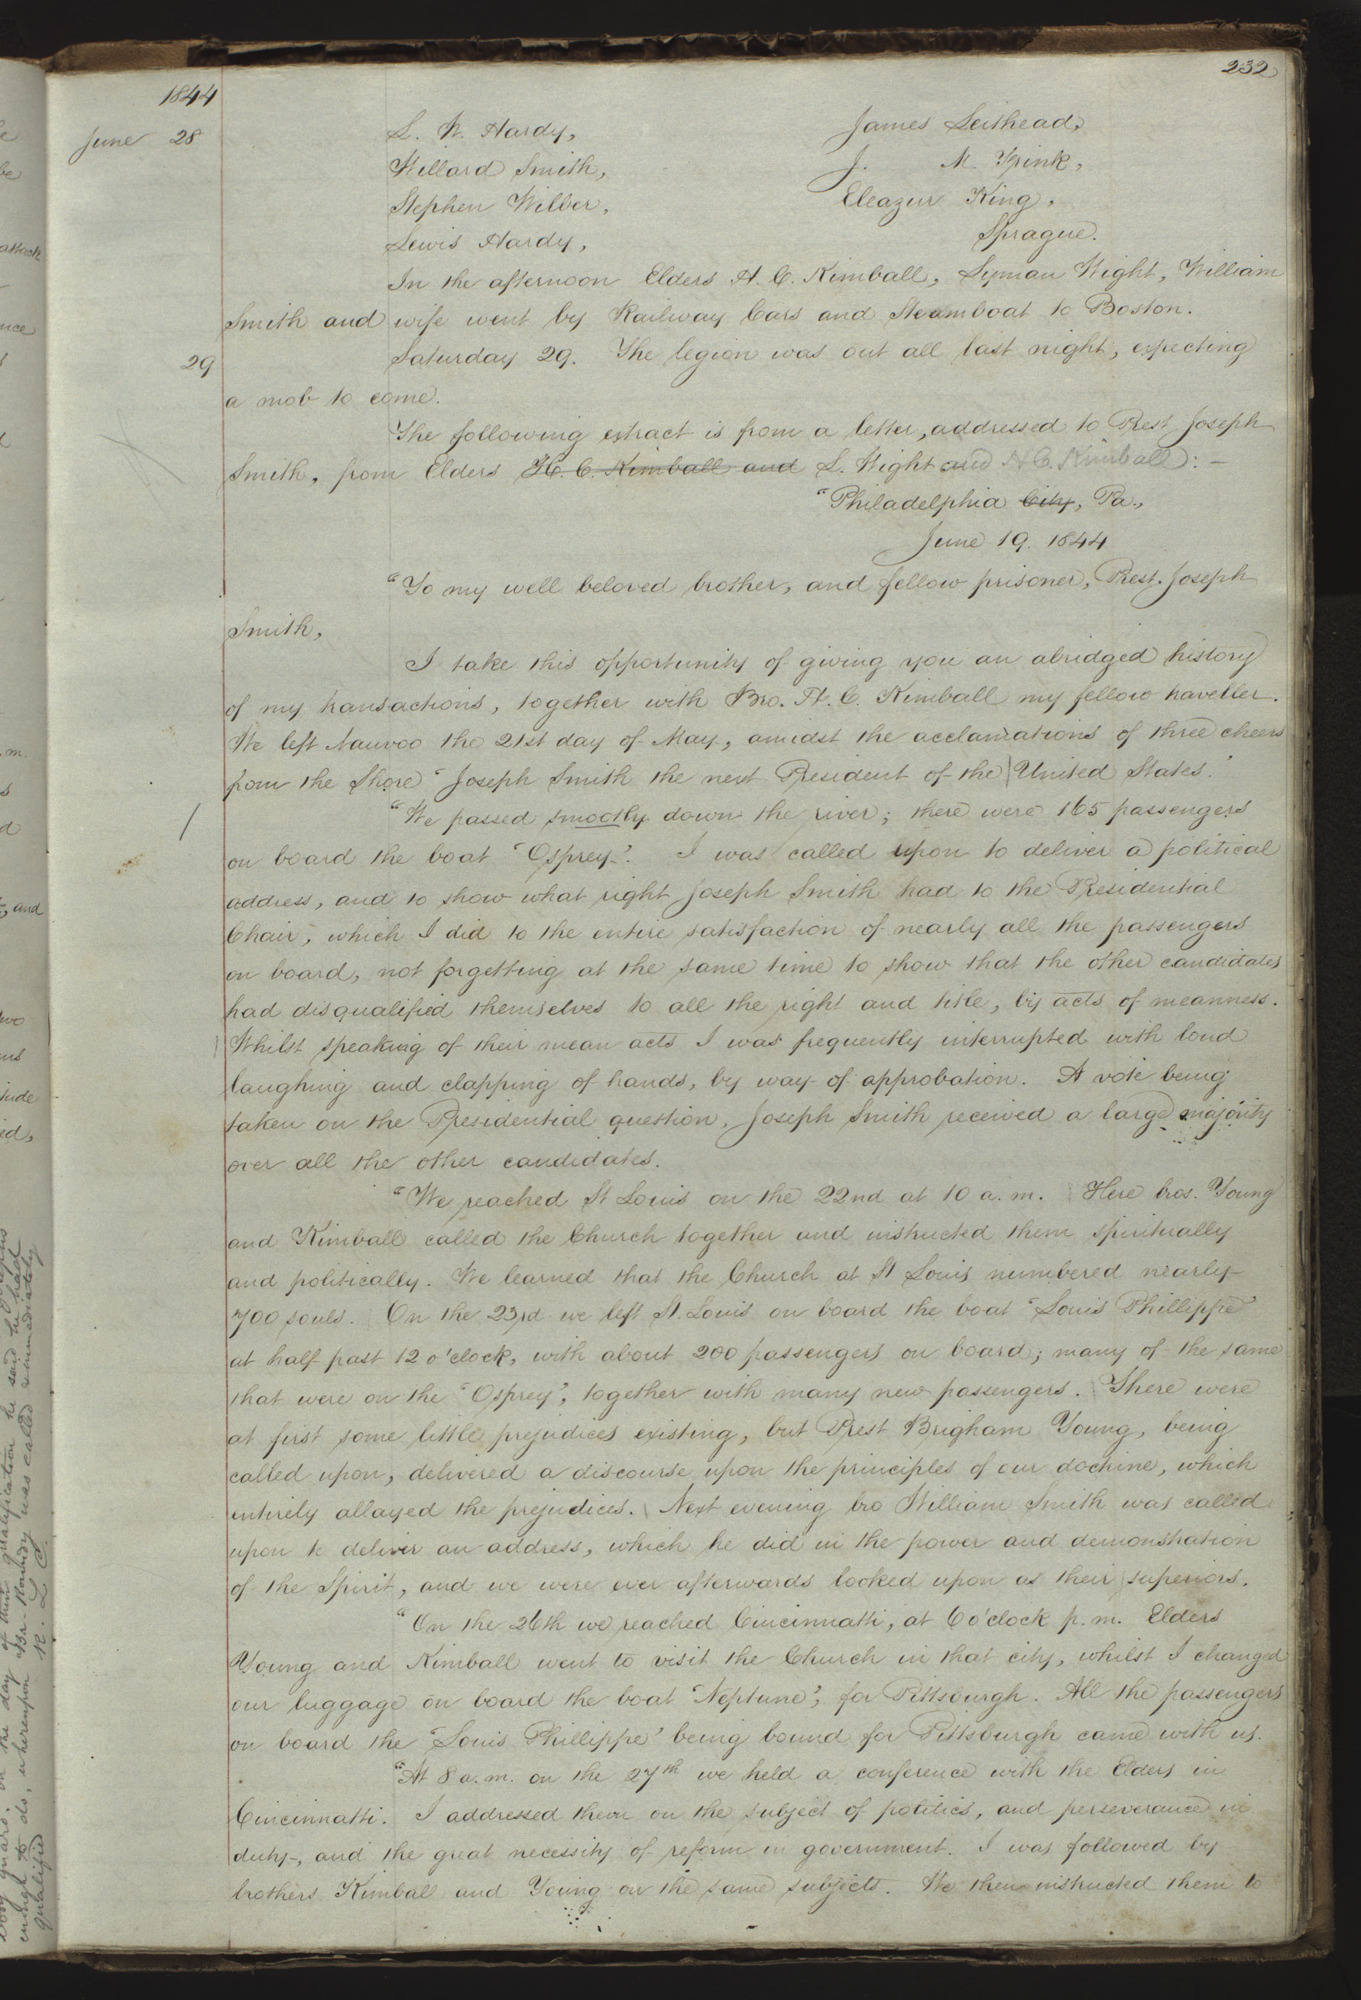 232
1844
June 28
L. N. Hardy, James Leithead,
Willard Smith, J. M. Tpink,
Stephen Wilber, Eleazur King,
Lewis Hardy, Sprague.
In the afternoon Elders H. C. Kimball, Lyman Wight, William
Smith and wife went by Railway Cars and Steamboat to Boston.
29 Saturday 29. The legion was out all last night, expecting
a mob to come.
The following extract is from a letter, addressed to Prest Joseph
Smith, from Elders H. C. Kimball and L. Wight and H C. Kimball: –
"Philadelphia City, Pa.,
June 19. 1844
"To my well beloved brother, and fellow prisoner, Prest. Joseph
Smith,
I take this opportunity of giving you an abridged history
of my transactions, together with Bro. H. C. Kimball my fellow traveller.
We left Nauvoo the 21st day of May, amidst the acclamations of three cheers
from the Shore "Joseph Smith the next President of the United States."
"We passed smootly down the river; there were 165 passengers
on board the boat "Osprey". I was called upon to deliver a political
address, and to show what right Joseph Smith had to the Presidential
Chair, which I did to the entire satisfaction of nearly all the passengers
on board, not forgetting at the same time to show that the other candidates
had disqualified themselves to all the right and title, by acts of meanness.
Whilst speaking of their mean acts I was frequently interrupted with loud
laughing and clapping of hands, by way of approbation. A vote being
taken on the Presidential question, Joseph Smith received a large majority
over all the other candidates.
"We reached St Louis on the 22nd at 10 a.m. Here bros. Young
and Kimball called the Church together and instructed them spiritually
and politically. We learned that the Church at St Louis numbered nearly
700 souls. On the 23rd we left St. Louis on board the boat "Louis Phillippe"
at half past 12 o'clock, with about 200 passengers on board; many of the same
that were on the "Osprey", together with many new passengers. There were
at first some little prejudices existing, but Prest Brigham Young, being
called upon, delivered a discourse upon the principles of our doctrine, which
entirely allayed the prejudices. Next evening bro William Smith was called
upon to deliver an address, which he did in the power and demonstration
of the Spirit, and we were ever afterwards looked upon as their superiors.
"On the 26th we reached Cincinnatti, at 6 o'clock p.m. Elders
Young and Kimball went to visit the Church in that city, whilst I changed
our luggage on board the boat "Neptune", for Pittsburgh. All the passengers
on board the "Louis Phillippe" being bound for Pittsburgh came with us.
"At 8 a.m. on the 27th we held a conference with the Elders in
Cincinnatti. I addressed them on the subject of politics, and perseverance in
duty, and the great necessity of reform in government. I was followed by
brothers Kimball and Young on the same subjects. We then instructed them to
attack
and
on the day of their qualification he said he had
enough to do, whereupon Mr. Rowsley was called immediately
qualified R. L. C.